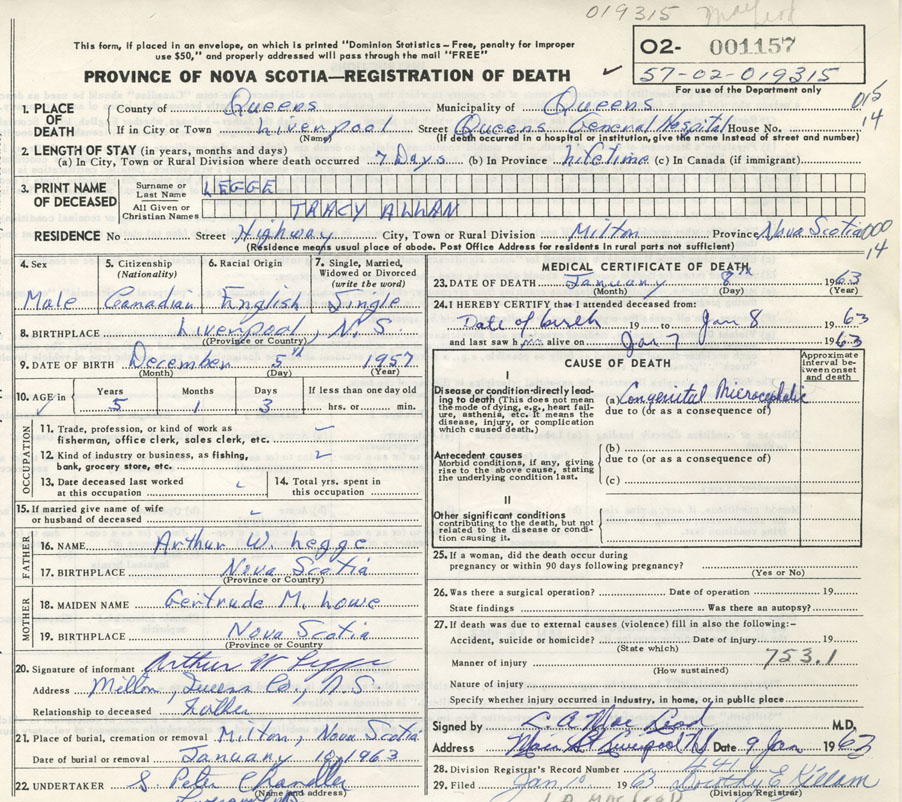 019315
This form, if placed in an envelope, on which is printed "Dominion Statistics – Free, penalty for improper
use $50," and properly addressed will pass through the mail "FREE"
O2- 001157
57-02-019315
For use of the Department only
PROVINCE OF NOVA SCOTIA—REGISTRATION OF DEATH
1. PLACE OF DEATH
County of Queens Municipality of Queens
015
14
If in City or Town Liverpool Street Queens General Hospital House No.
(Name) (If death occurred in a hospital or institution, give the name instead of street and number)
2. LENGTH OF STAY (in years, months and days)
(a) In City, Town or Rural Division where death occurred 7 Days (b) In Province lifetime (c) In Canada (if immigrant)
3. PRINT NAME OF DECEASED
Surname or Last Name LEGGE
All Given or Christian Names TRACY ALLAN
RESIDENCE No Street Highway City, Town or Rural Division Milton Province Nova Scotia
000
14
(Residence means usual place of abode. Post Office Address for residents in rural parts not sufficient)
4. Sex 5. Citizenship (Nationality) 6. Racial Origin 7. Single, Married, Widowed or Divorced (write the word)
Male Canadian English Single
8. BIRTHPLACE Liverpool, N.S.
(Province or Country)
9. DATE OF BIRTH December 5th 1957
(Month) (Day) (Year)
10. AGE in Years Months Days If less than one day old
5 1 3 hrs. or min.
OCCUPATION
11. Trade, profession, or kind of work as
fisherman, office clerk, sales clerk, etc.
12. Kind of industry or business, as fishing,
bank, grocery store, etc.
13. Date deceased last worked
at this occupation
14. Total yrs. spent in
this occupation
15. If married give name of wife
or husband of deceased
FATHER
16. NAME Arthur W. Legge
17. BIRTHPLACE Nova Scotia
(Province or Country)
MOTHER
18. MAIDEN NAME Gertrude M. Lowe
19. BIRTHPLACE Nova Scotia
(Province or Country)
20. Signature of informant Arthur W Legge
Address Milton, Queens Co., N.S
Relationship to deceased Father
21. Place of burial, cremation or removal Milton, Nova Scotia
Date of burial or removal January 10, 1963
22. UNDERTAKER S. Peter Chandler
(Name and address)
MEDICAL CERTIFICATE OF DEATH
23. DATE OF DEATH January 8th 1963
(Month) (Day) (Year)
24. I HEREBY CERTIFY that I attended deceased from:
Date of birth 19 to Jan 8 1963
and last saw him alive on Jan 7 1963
CAUSE OF DEATH
Approximate interval between onset and death
I
Disease or condition directly leading
to death (This does not mean
the mode of dying, e.g., heart failure,
asthenia, etc. It means the
disease, injury, or complication
which caused death.)
(a) Congenital Microcephalic
due to (or as a consequence of)
Antecedent causes
Morbid conditions, if any, giving
rise to the above cause, stating
the underlying condition last.
(b)
due to (or as a consequence of)
(c)
II
Other significant conditions
contributing to the death, but not
related to the disease or condition
causing it.
25. If a woman, did the death occur during
pregnancy or within 90 days following pregnancy?
(Yes or No)
26. Was there a surgical operation? Date of operation 19
State findings Was there an autopsy?
27. If death was due to external causes (violence) fill in also the following:-
Accident, suicide or homicide? Date of injury 19
(State which)
Manner of injury 753.1
(How sustained)
Nature of injury
Specify whether injury occurred in industry, in home, or in public place
Signed by M.D.
Address Main St Liverpool NS Date 9 Jan 1963
28. Division Registrar's Record Number 441
29. Filed Jan 10 1963 Dorothy E Killam
(Division Registrar)